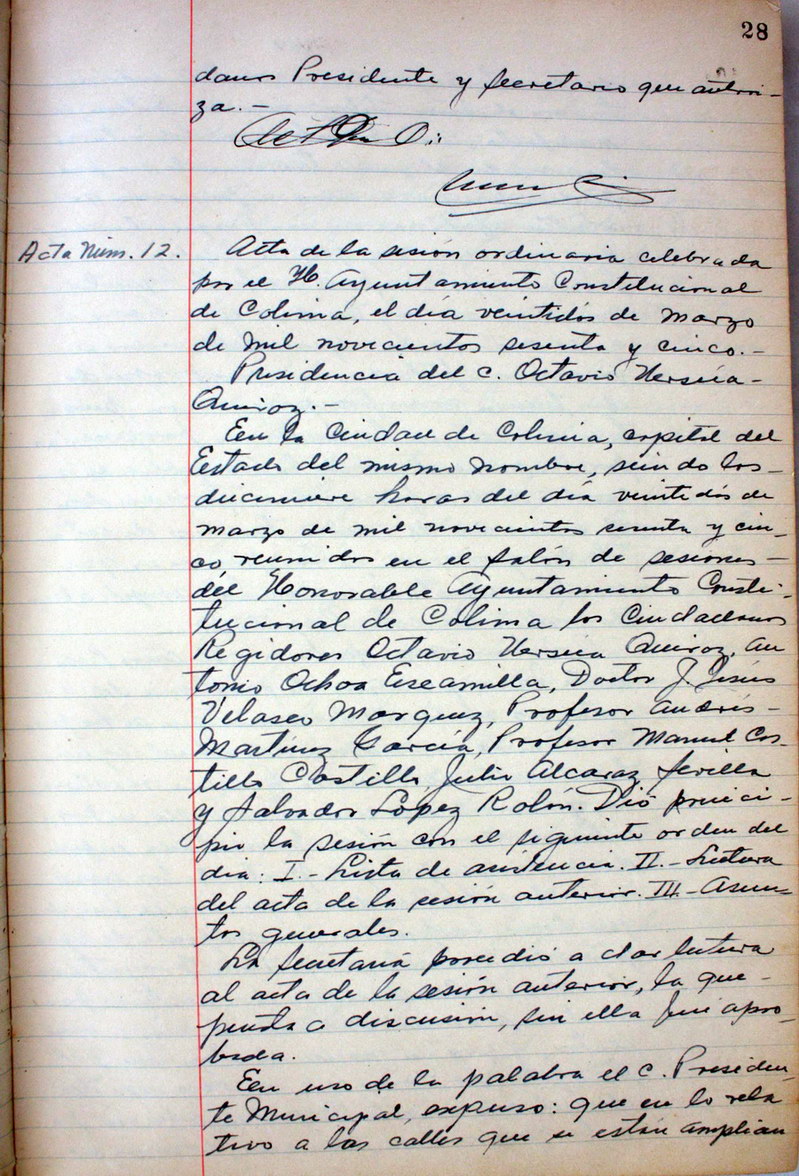 28
danos Presidente y Secretario que autori-
za.-
Acta Núm. 12.
Acta de la sesión ordinaria celebrada
por el H. Ayuntamiento Constitucional
de Colima, el día veintidós de marzo
de mil novecientos sesenta y cinco.-
Presidencia del C. Octavio Ursúa-
Quiroz.-
En la Ciudad de Colima, capital del
Estado del mismo nombre, siendo las-
diecinueve horas del día veintidós de
marzo de mil novecientos sesenta y cin-
co, reunidos en el salón de sesiones-
del Honorable Ayuntamiento Consti-
tucional de Colima los Ciudadanos
Regidores Octavio Ursúa Quiroz, An
tonio Ochoa Escamilla, Doctor J. Jesús
Velasco Marquez, Profesor Andrés-
Martínez García, Profesor Manuel Cas-
tillo Castillo, Julio Alcaraz Sevilla
y Salvador López Rolón. Dió princi-
pio la sesión con el siguiente orden del
día: I.- Lista de asistencia. II.- Lectura
del acta de la sesión anterior. III.- Asun-
tos generales.
La Secretaría procedió a dar lectura
al acta de la sesión anterior, la que-
puesta a discusión, sin ella fué apro-
bada.
En uso de la palabra el C. Presiden-
te Municipal, expuso: que en lo rela
tivo a las calles que se están amplian